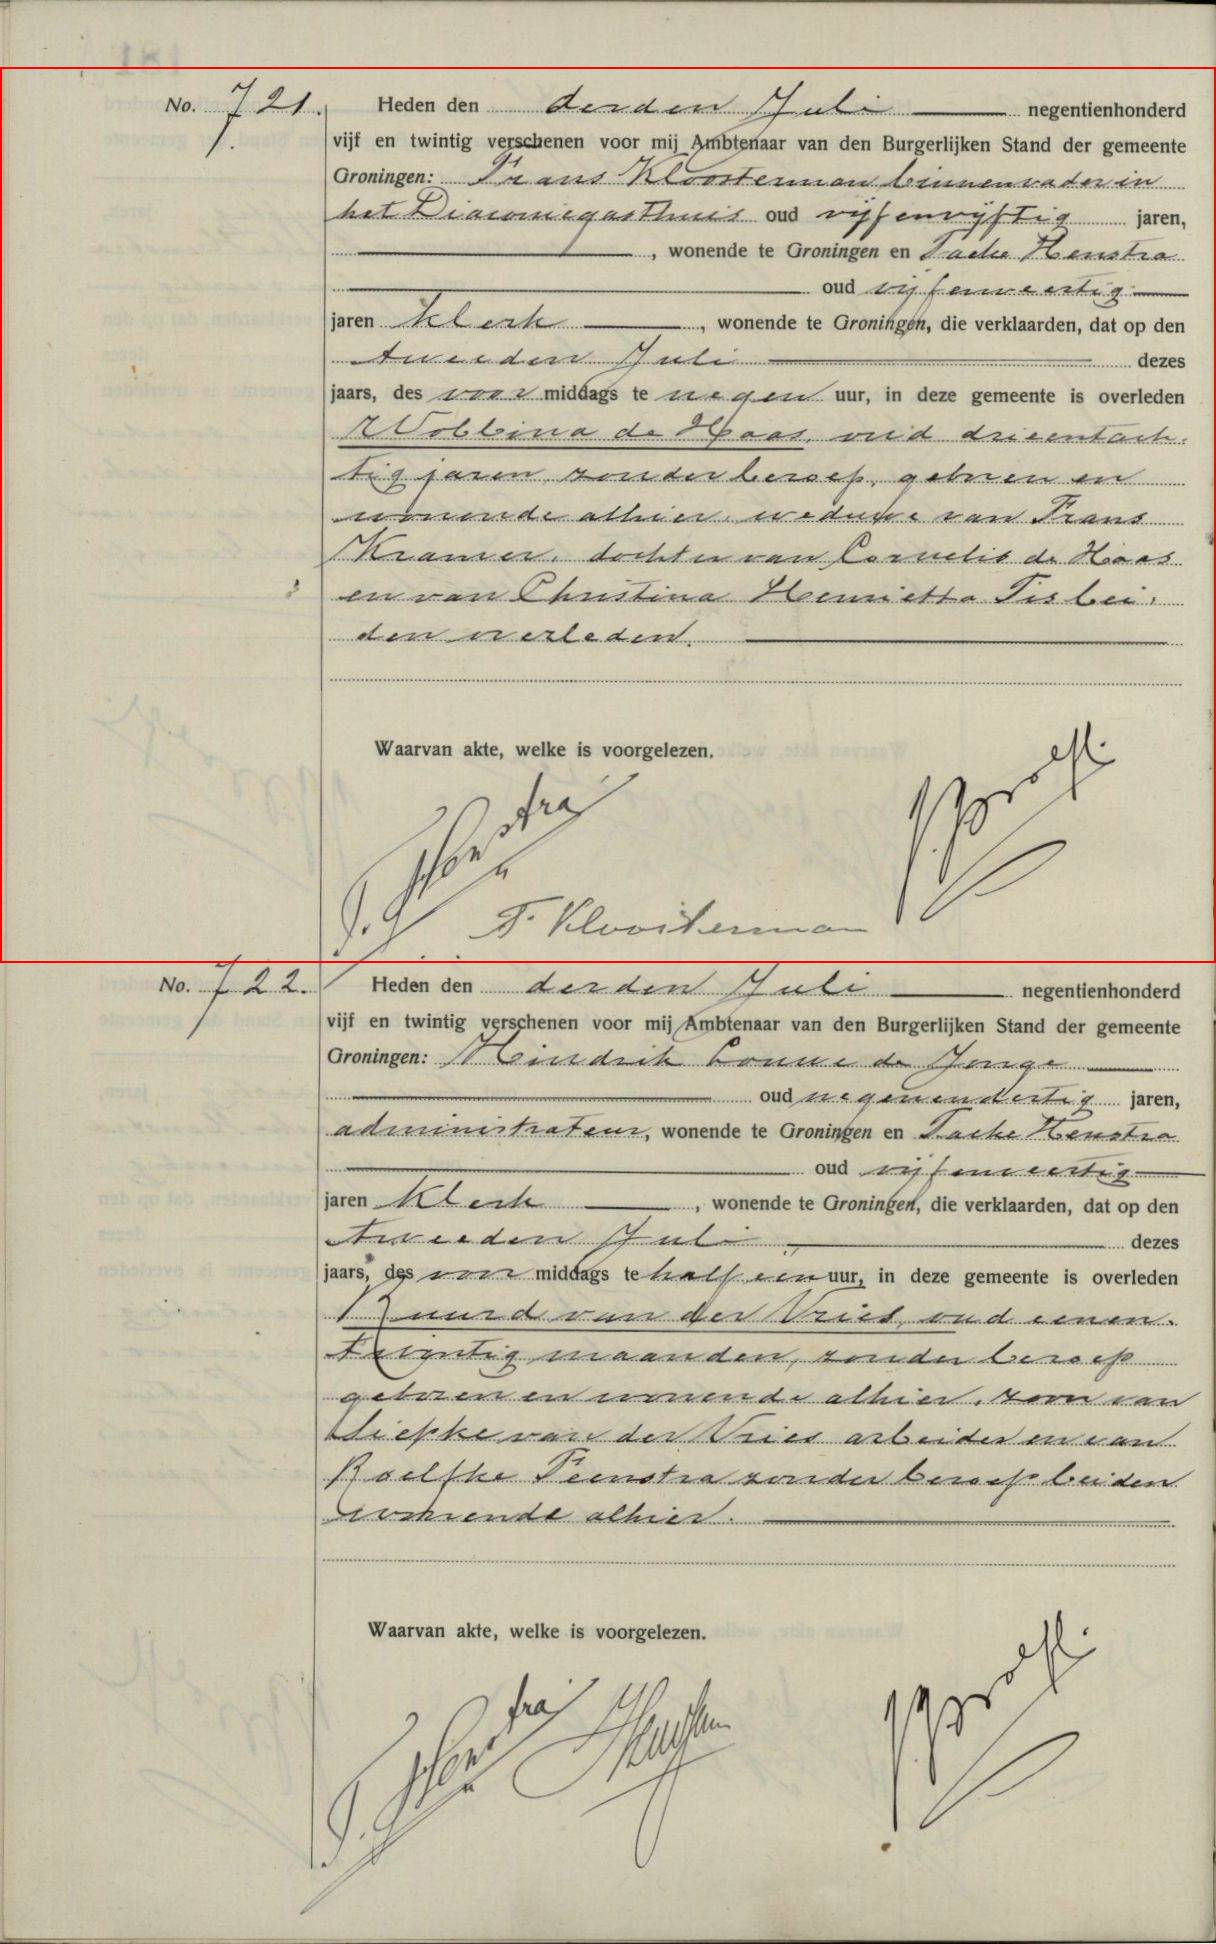 No. 721.
Heden den derden Juli negentienhonderd
vijf en twintig verschenen voor mij Ambtenaar van den Burgerlijken Stand der gemeente
Groningen: Frans Kloosterman binnenvader in
het Diaconiegasthuis oud vijfenvijftig jaren,
, wonende te Groningen en Taeke Henstra
oud vijfenveertig
jaren klerk , wonende te Groningen, die verklaarden, dat op den
tweeden Juli dezes
jaars, des voor middags te negen uur, in deze gemeente is overleden
Wobbina de Haas, oud drieentach-
tig jaren, zonder beroep, geboren en
wonende alhier, weduwe van Frans
Kramer, dochter van Cornelis de Haas
en van Christina Henrietta Tis bei-
den overleden.
Waarvan akte, welke is voorgelezen.
T. Henstra
F. Kloosterman
No. 722.
Heden den derden Juli negentienhonderd
vijf en twintig verschenen voor mij Ambtenaar van den Burgerlijken Stand der gemeente
Groningen: Hindrik Louwe de Jonge
oud negenendertig jaren,
administrateur, wonende te Groningen en Taeke Henstra
oud vijfenveertig
jaren klerk , wonende te Groningen, die verklaarden, dat op den
tweeden Juli dezes
jaars, des voor middags te half een uur, in deze gemeente is overleden
Ruurd van der Vries, oud eenen-
twintig maanden, zonder beroep
geboren en wonende alhier, zoon van
Siepke van der Vries arbeider en van
Roelfke Feenstra zonder beroep beiden
wonende alhier.
Waarvan akte, welke is voorgelezen.
T. Henstra